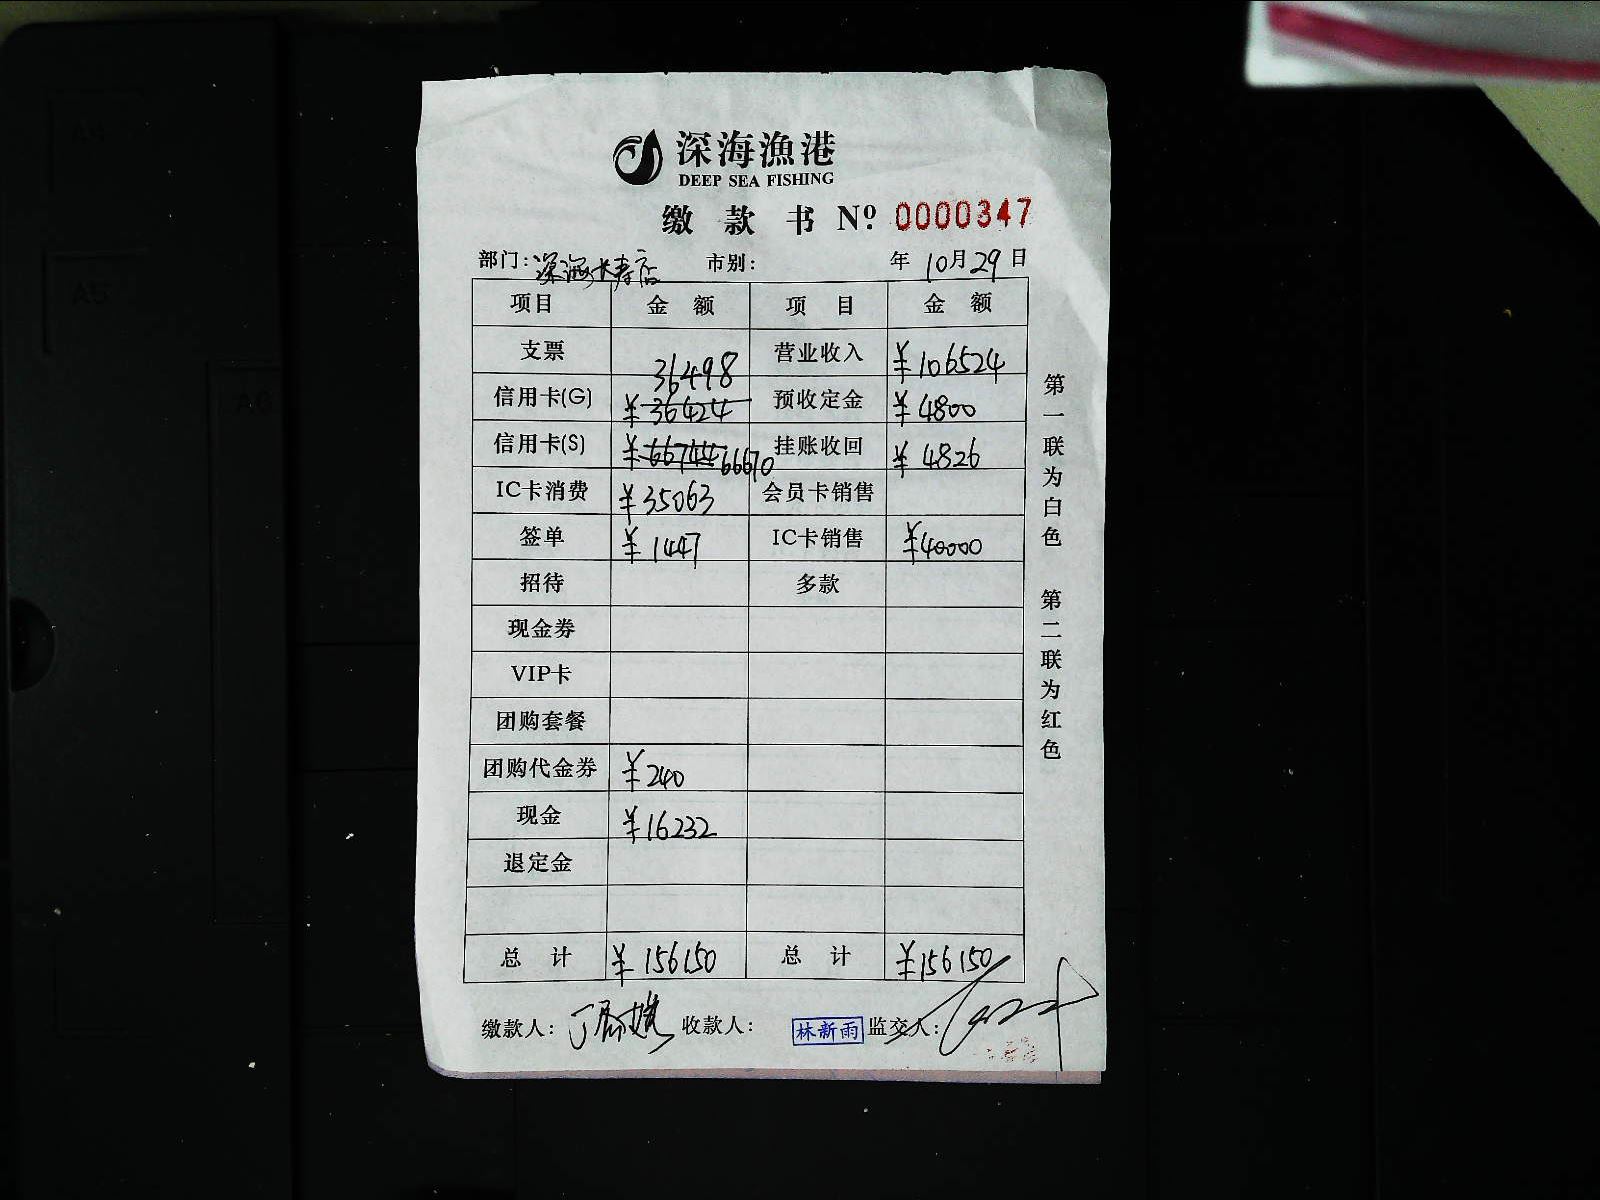 深海渔港
DEEP SEA FISHING
缴款书 Nº. 0000347
部门：深海长寿店 市别： 年10月29日
项目 金额 项目 金额
支票 营业收入 ¥106524
36498
信用卡(G) ¥36424 预收定金 ¥4800
信用卡(S) ¥66744 66670 挂账收回 ¥4826
IC卡消费 ¥35063 会员卡销售
签单 ¥1447 IC卡销售 ¥40000
招待 多款
现金券
VIP卡
团购套餐
团购代金券 ¥240
现金 ¥16232
退定金
总计 ¥156150 总计 ¥156150
缴款人： 收款人： 林新雨 监交人：
第一联为白色 第二联为红色
A4
A5
A6